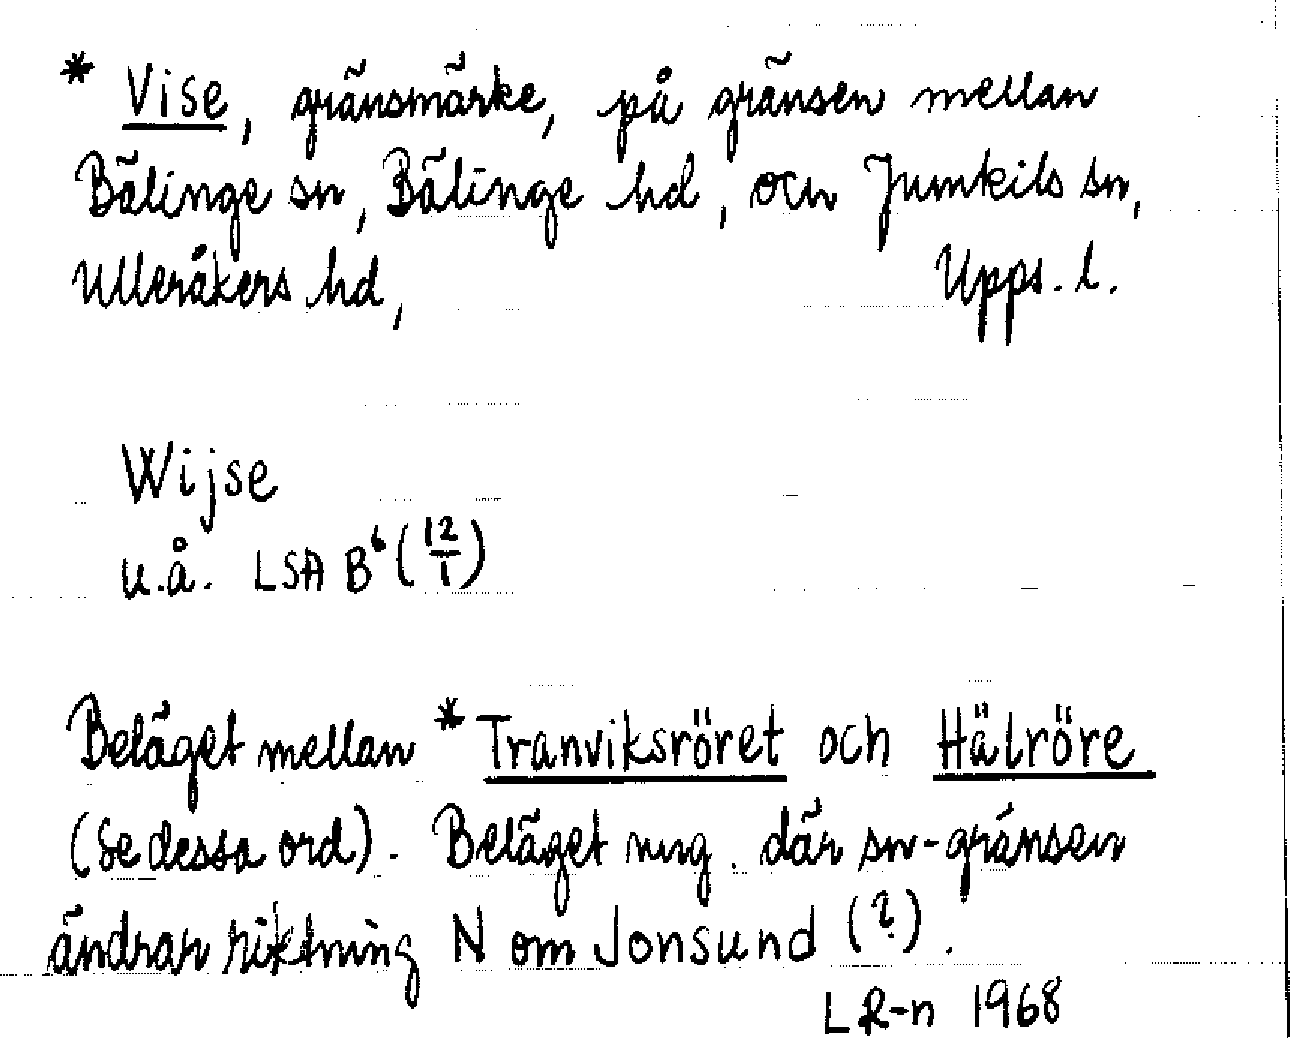 * Vise, gränsmärke, på gränsen mellan
Bälinge sn, Bälinge hd, och Jumkils sn,
Ulleråkers hd, Upps. l.
Wijse
u.å. LSA B⁶ (12/1)
Beläget mellan * Tranviksröret och Hälröre
(se dessa ord). Beläget ung. där sn-gränsen
ändrar riktning N om Jonsund (?).
LR-n 1968